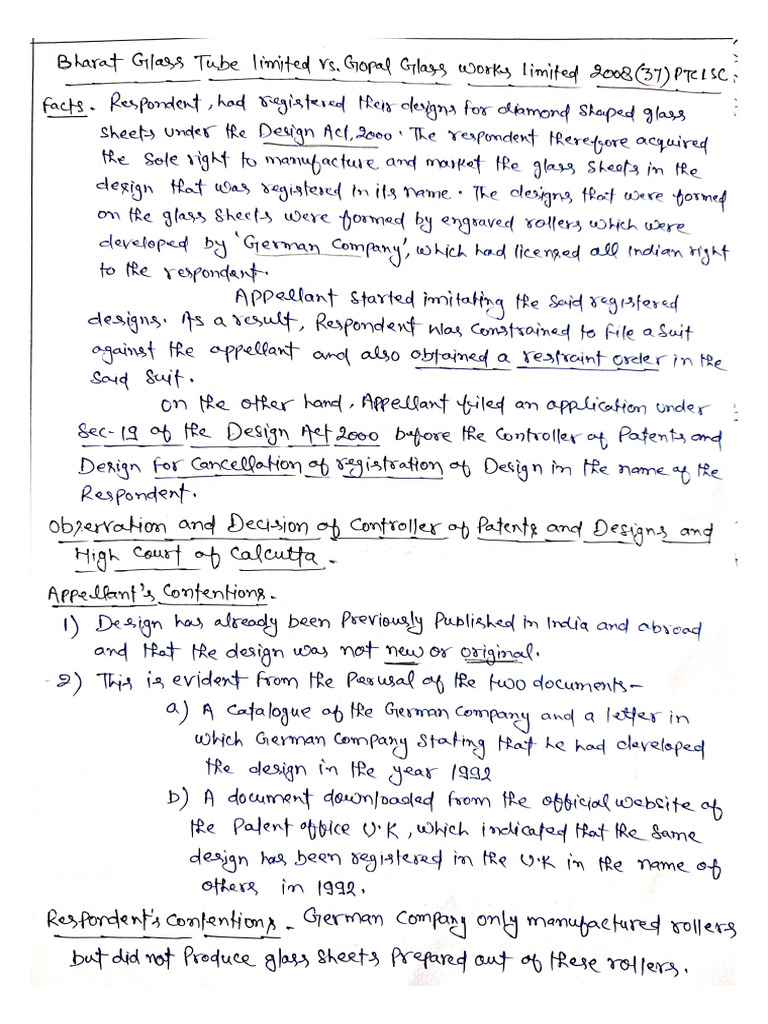 Bharat Glass Tube limited vs. Gopal Glass works limited 2008(37) PTC 1 SC
facts. Respondent, had registered their designs for diamond shaped glass
sheets under the Design Act, 2000. The respondent therefore acquired
the sole right to manufacture and market the glass sheets in the
design that was registered in its name. The designs that were formed
on the glass sheets were formed by engraved rollers which were
developed by 'German Company', which had licensed all Indian right
to the respondent.
Appellant started imitating the said registered
designs. As a result, Respondent was constrained to file a suit
against the appellant and also obtained a restraint order in the
said suit.
on the other hand, Appellant filed an application under
Sec-19 of the Design Act 2000 before the Controller of Patents and
Design for cancellation of registration of Design in the name of the
Respondent.
Observation and Decision of Controller of Patents and Designs and
High Court of Calcutta.
Appellant's Contentions.
1) Design has already been previously published in India and abroad
and that the design was not new or original.
2) This is evident from the perusal of the two documents-
a) A catalogue of the German Company and a letter in
which German Company stating that he had developed
the design in the year 1992
b) A document downloaded from the official website of
the Patent office U.K, which indicated that the same
design has been registered in the U.K in the name of
others in 1992.
Respondent's Contentions. German Company only manufactured rollers
but did not produce glass sheets prepared out of these rollers.